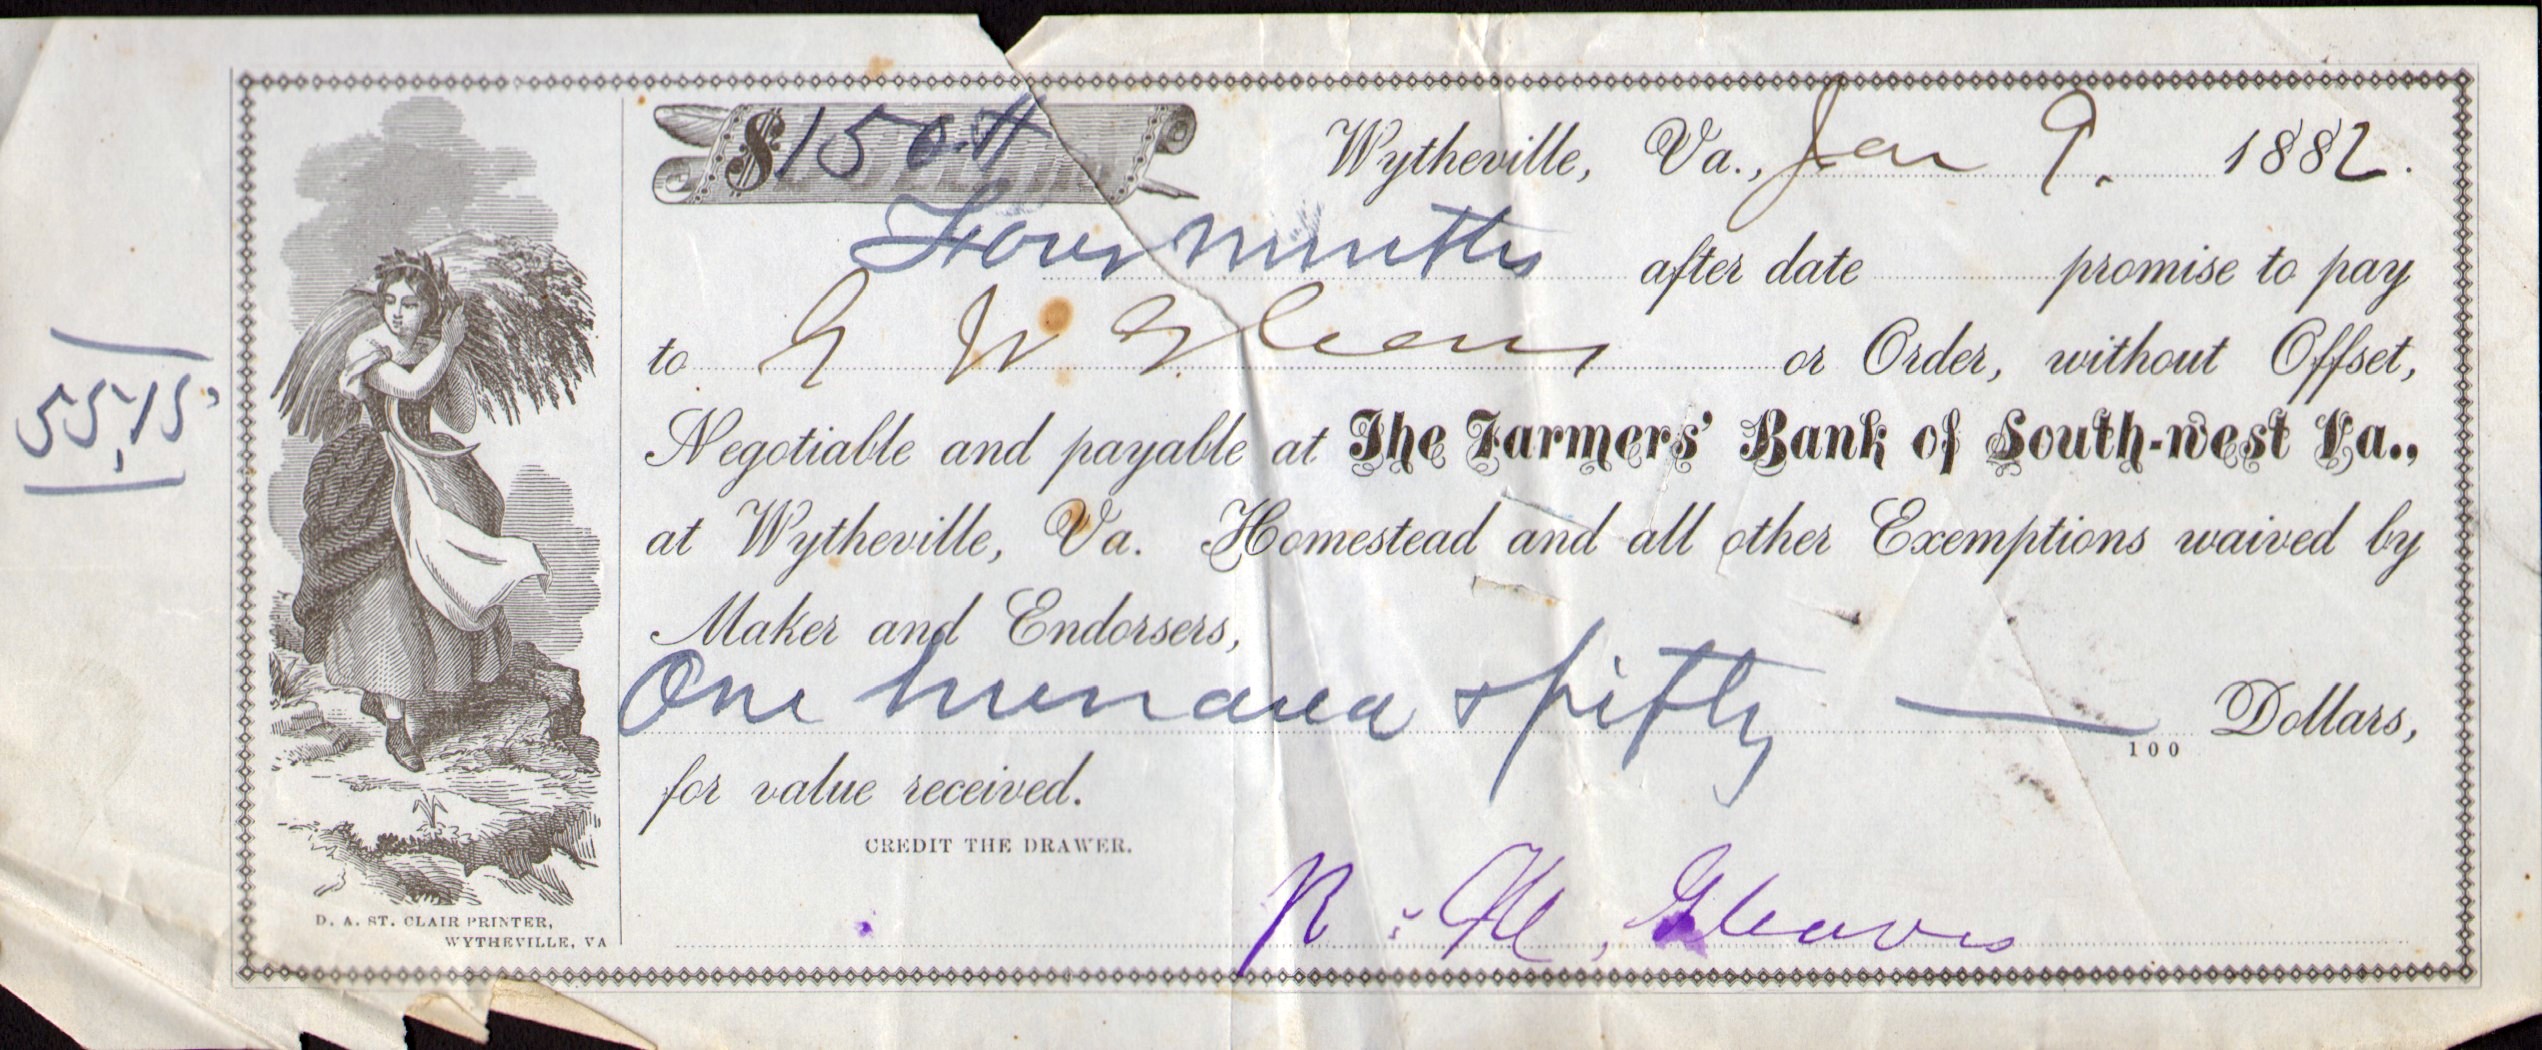 $150.
Wytheville, Va., Jan 9. 1882.
Four months after date promise to pay
to G W Gleaves or Order, without Offset,
Negotiable and payable at The Farmers' Bank of South-west Va.,
at Wytheville, Va. Homestead and all other Exemptions waived by
Maker and Endorsers,
One hundred & fifty 100 Dollars,
for value received.
CREDIT THE DRAWER.
Gleaves
5515
D. A. ST. CLAIR PRINTER,
WYTHEVILLE, VA